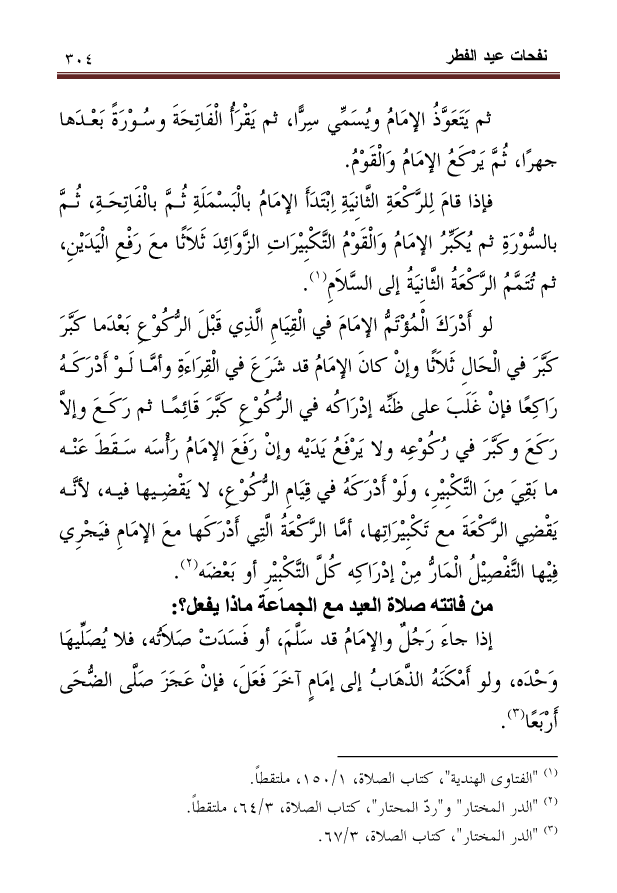 نفحات عيد الفطر ٣٠٤
ثم يَتَعَوَّذُ الإمَامُ ويُسَمِّي سِرًّا، ثم يَقْرَأُ الْفَاتِحَةَ وسُـوْرَةً بَعْـدَها
جهرًا، ثُمَّ يَرْكَعُ الإمَامُ وَالْقَوْمُ.
فإذا قامَ لِلرَّكْعَةِ الثَّانِيَةِ اِبْتَدَأَ الإمَامُ بالْبَسْمَلَةِ ثُـمَّ بالْفَاتِحَـةِ، ثُـمَّ
بالسُّوْرَةِ ثم يُكَبِّرُ الإمَامُ وَالْقَوْمُ التَّكْبِيْرَاتِ الزَّوَائِدَ ثَلاَثًا معَ رَفْعِ الْيَدَيْنِ،
ثم تُتَمَّمُ الرَّكْعَةُ الثَّانِيَةُ إلى السَّلاَمِ(١).
لو أَدْرَكَ الْمُؤْتَمُّ الإمَامَ في الْقِيَامِ الَّذِي قَبْلَ الرُّكُوْعِ بَعْدَما كَبَّرَ
كَبَّرَ في الْحَالِ ثَلاَثًا وإنْ كانَ الإمَامُ قد شَرَعَ في الْقِرَاءَةِ وأمَّـا لَـوْ أَدْرَكَـهُ
رَاكِعًا فإنْ غَلَبَ على ظَنِّه إدْرَاكُه في الرُّكُوْعِ كَبَّرَ قَائِمًـا ثم رَكَـعَ وإلاَّ
رَكَعَ وكَبَّرَ في رُكُوْعِه ولا يَرْفَعُ يَدَيْه وإنْ رَفَعَ الإمَامُ رَأْسَه سَـقَطَ عَنْـه
ما بَقِيَ مِنَ التَّكْبِيْرِ، ولَوْ أَدْرَكَهُ في قِيَامِ الرُّكُوْعِ، لا يَقْضِـيها فيـه، لأنَّـه
يَقْضِي الرَّكْعَةَ مع تَكْبِيْرَاتِها، أمَّا الرَّكْعَةُ الَّتِي أَدْرَكَها معَ الإمَامِ فيَجْرِي
فِيْها التَّفْصِيْلُ الْمَارُّ مِنْ إدْرَاكِه كُلَّ التَّكْبِيْرِ أو بَعْضَه(٢).
من فاتته صلاة العيد مع الجماعة ماذا يفعل؟:
إذا جاءَ رَجُلٌ والإمَامُ قد سَلَّمَ، أو فَسَدَتْ صَلاَتُه، فلا يُصَلِّيهَا
وَحْدَه، ولو أَمْكَنَهُ الذَّهَابُ إلى إمَامٍ آخَرَ فَعَلَ، فإنْ عَجَزَ صَلَّى الضُّحَى
أَرْبَعًا(٣).
(١) "الفتاوى الهندية"، كتاب الصلاة، ١/١٥٠، ملتقطاً.
(٢) "الدر المختار" و"ردّ المحتار"، كتاب الصلاة، ٣/٦٤، ملتقطاً.
(٣) "الدر المختار"، كتاب الصلاة، ٣/٦٧.